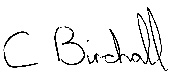 C Birchall